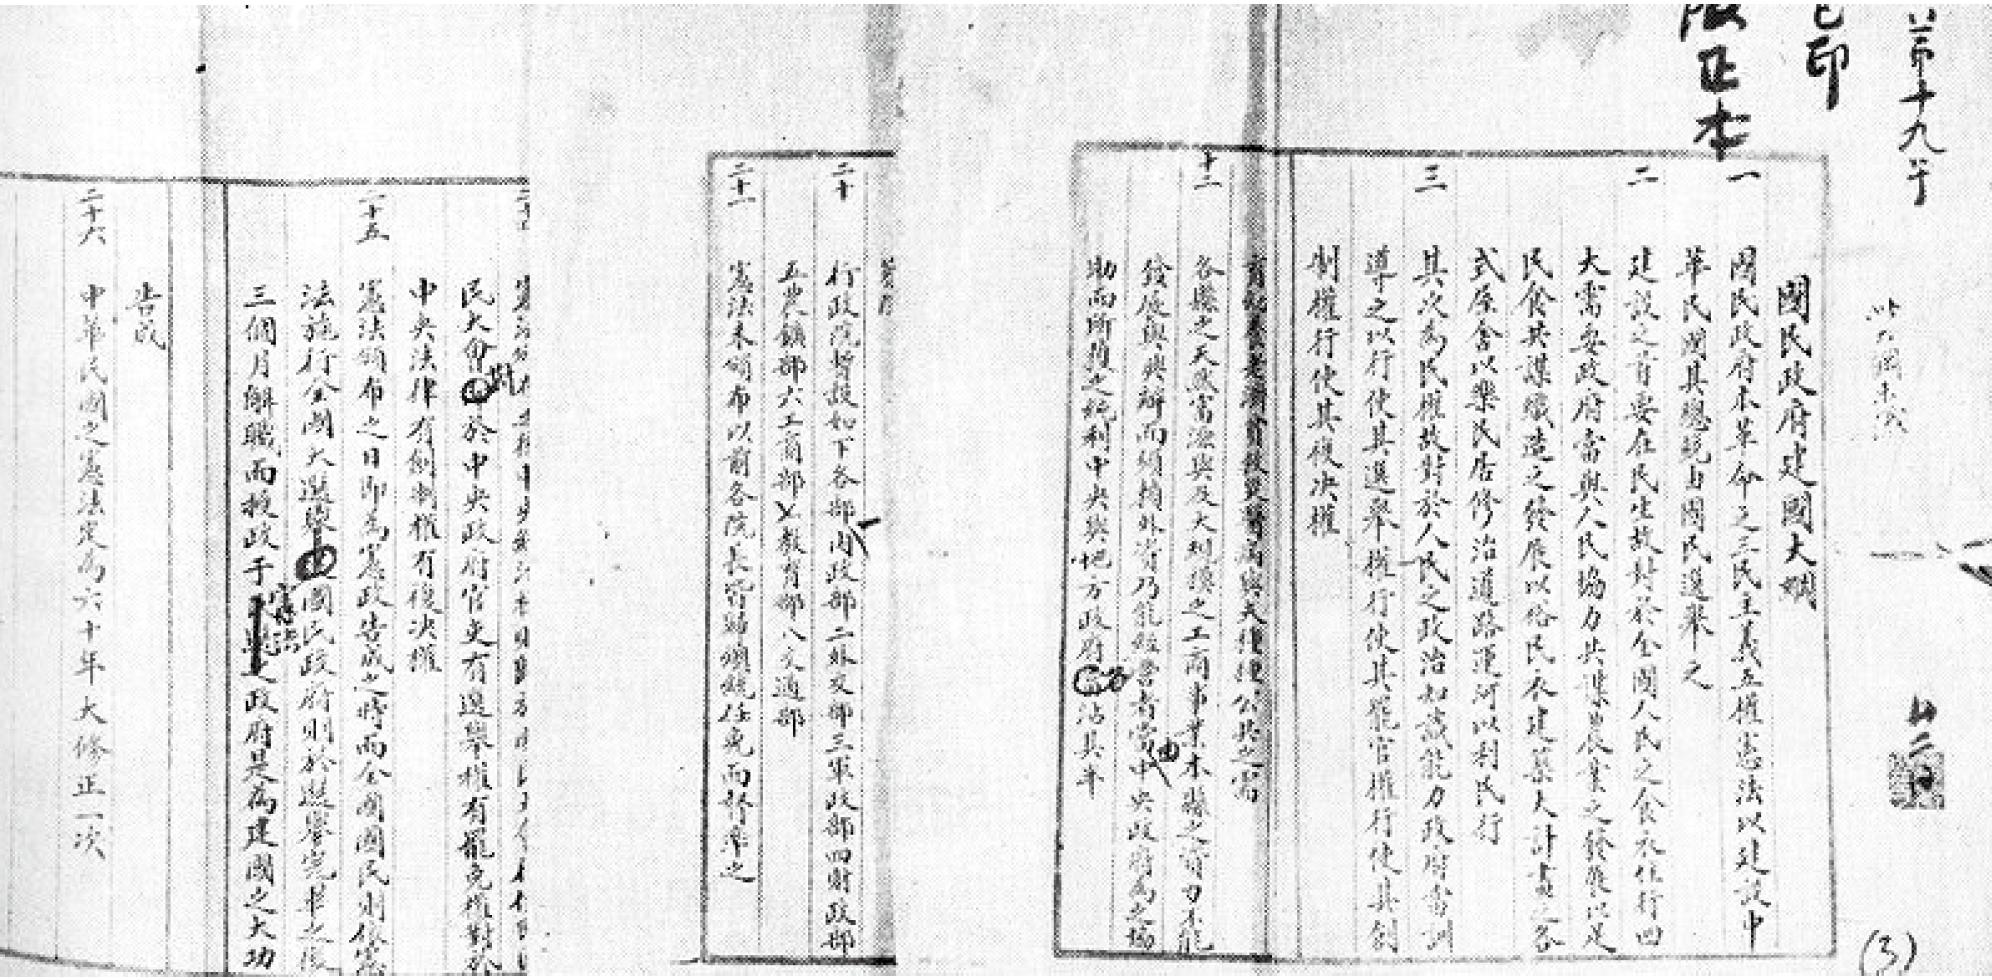 第十九
已印
正本
國民政府建國大綱
一 國民政府本革命之三民主義五權憲法以建設中
華民國其總統由國民選舉之
二 建設之首要在民生故對於全國人民之食衣住行四
大需要政府當與人民協力共謀農業之發展以足
民食共謀織造之發展以裕民衣建築大計畫之各
式屋舍以樂民居修治道路運河以利民行
三 其次為民權故對於人民之政治知識能力政府當訓
導之以行使其選舉權行使其罷官權行使其創
制權行使其復決權
育幼養老濟貧救災醫病與夫種種公共之需
十二 各縣之天然富源與及大規模之工商事業本縣之資力不能
發展與興辦而須外資乃能經營者當由中央政府為之協
助而所獲之純利中央與地方政府各沾其半
二十 行政院暫設如下各部一內政部二外交部三軍政部四財政部
五農鑛部六工商部七教育部八交通部
二十一 憲法未頒布以前各院長皆歸總統任免而督率之
民大會於中央政府官吏有選舉權有罷免權對於
中央法律有創制權有復決權
二十五 憲法頒布之日即為憲政告成之時而全國國民則依憲
法施行全國大選舉國民政府則於選舉完畢之後
三個月解職而授政于之政府是為建國之大功
告成
二十六 中華民國之憲法定為六十年大修正一次
(3)